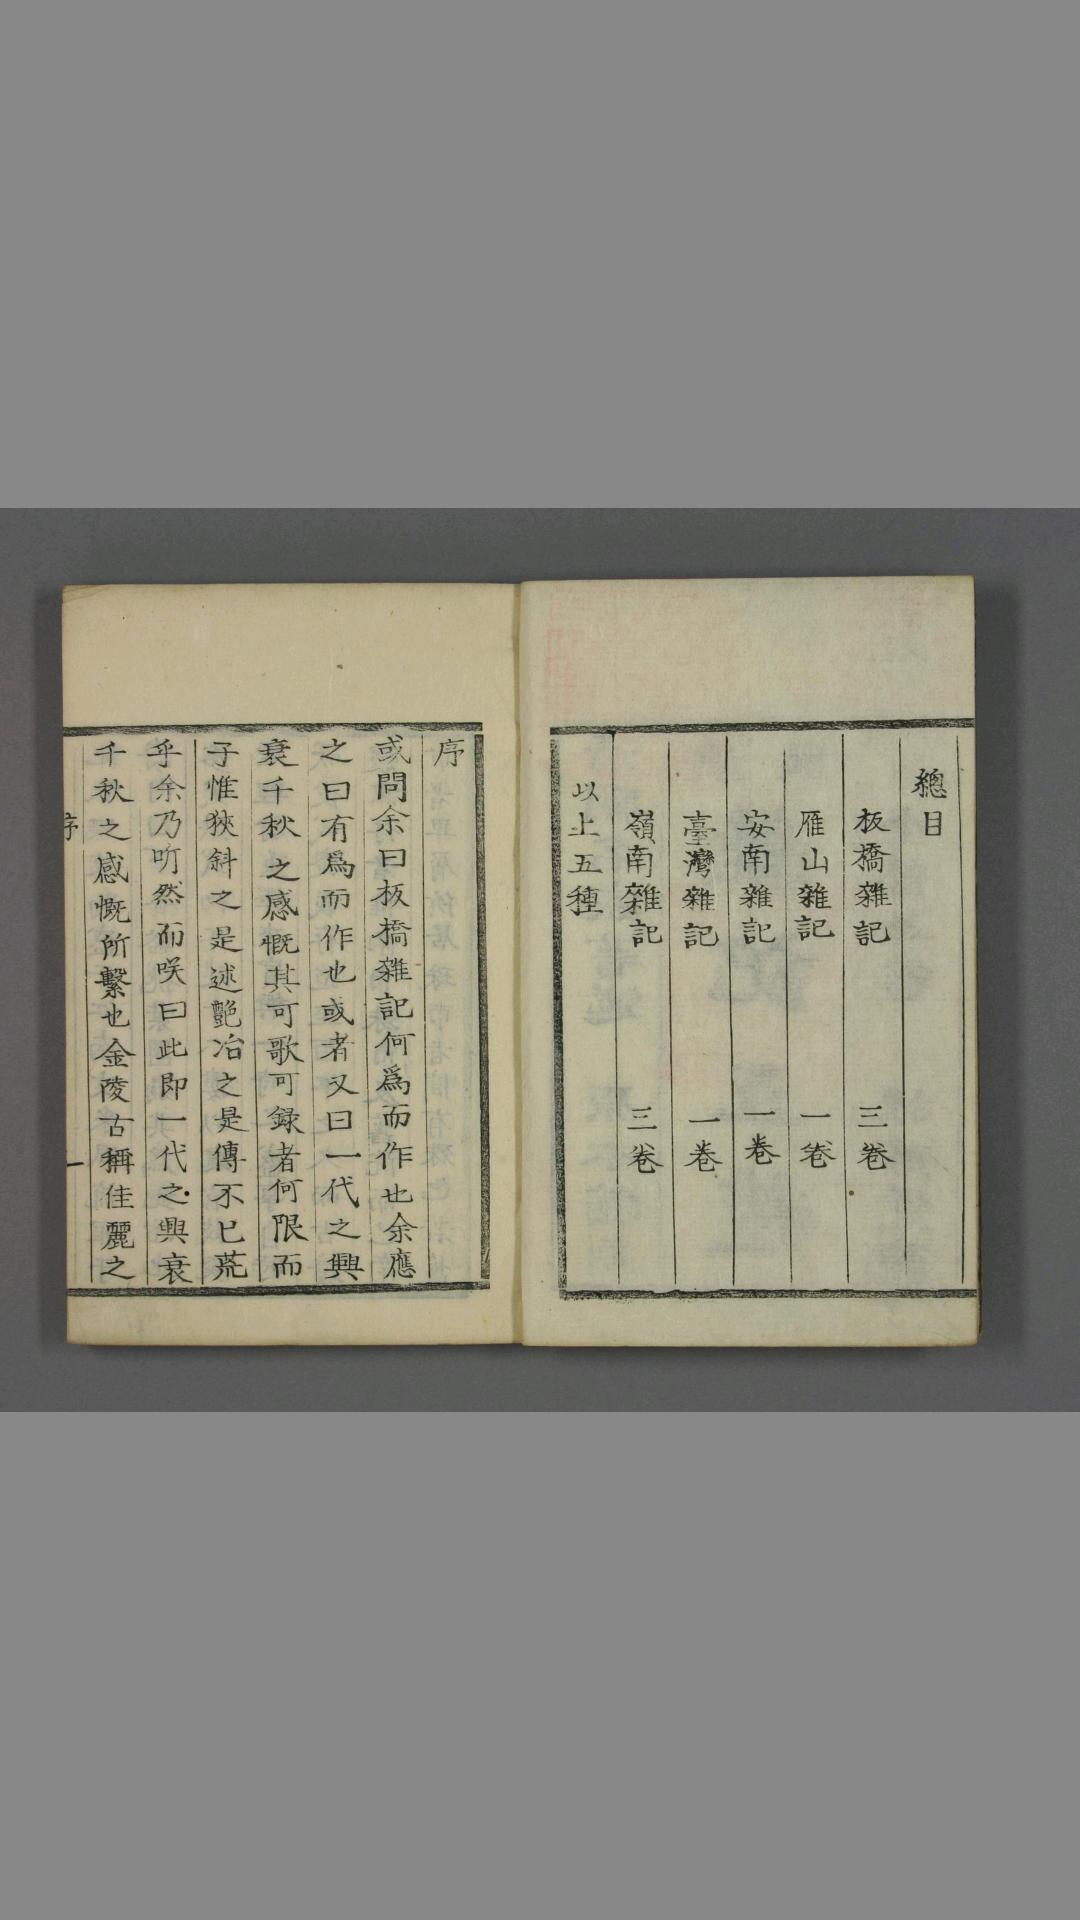 總目
板橋雜記 三卷
雁山雜記 一卷
安南雜記 一卷
臺灣雜記 一卷
嶺南雜記 三卷
以上五種
序
或問余曰板橋雜記何爲而作也余應
之曰有爲而作也或者又曰一代之興
衰千秋之感慨其可歌可録者何限而
子惟狹斜之是述艷冶之是傳不已荒
乎余乃听然而咲曰此即一代之興衰
千秋之感慨所繫也金陵古稱佳麗之
序 一